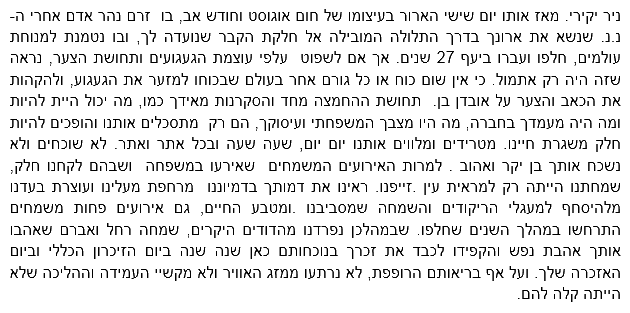 ניר יקירי. מאז אותו יום שישי הארור בעיצומו של חום אוגוסט וחודש אב, בו  זרם נהר אדם אחרי ה-
נ.נ. שנשא את ארונך בדרך התלולה המובילה אל חלקת הקבר שנועדה לך, ובו נטמנת למנוחת
עולמים, חלפו ועברו ביעף 27 שנים. אך אם לשפוט  עלפי עוצמת הגעגועים ותחושת הצער, נראה
שזה היה רק אתמול. כי אין שום כוח או כל גורם אחר בעולם שבכוחו למזער את הגעגוע, ולהקהות
את הכאב והצער על אובדן בן.  תחושת ההחמצה מחד והסקרנות מאידך כמו, מה יכול היית להיות
ומה היה מעמדך בחברה, מה היו מצבך המשפחתי ועיסוקך, הם רק  מתסכלים אותנו והופכים להיות
חלק משגרת חיינו. מטרידים ומלווים אותנו יום יום, שעה שעה ובכל אתר ואתר. לא שוכחים ולא
נשכח אותך בן יקר ואהוב . למרות האירועים המשמחים  שאירעו במשפחה  ושבהם לקחנו חלק,
שמחתנו הייתה רק למראית עין .זייפנו. ראינו את דמותך בדמיוננו  מרחפת מעלינו ועוצרת בעדנו
מלהיסחף למעגלי הריקודים והשמחה שמסביבנו .ומטבע החיים, גם אירועים פחות משמחים
התרחשו במהלך השנים שחלפו. שבמהלכן נפרדנו מהדודים היקרים, שמחה רחל ואברם שאהבו
אותך אהבת נפש והקפידו לכבד את זכרך בנוכחותם כאן שנה שנה ביום הזיכרון הכללי וביום
האזכרה שלך. ועל אף בריאותם הרופפת, לא נרתעו ממזג האוויר ולא מקשיי העמידה וההליכה שלא
הייתה קלה להם.